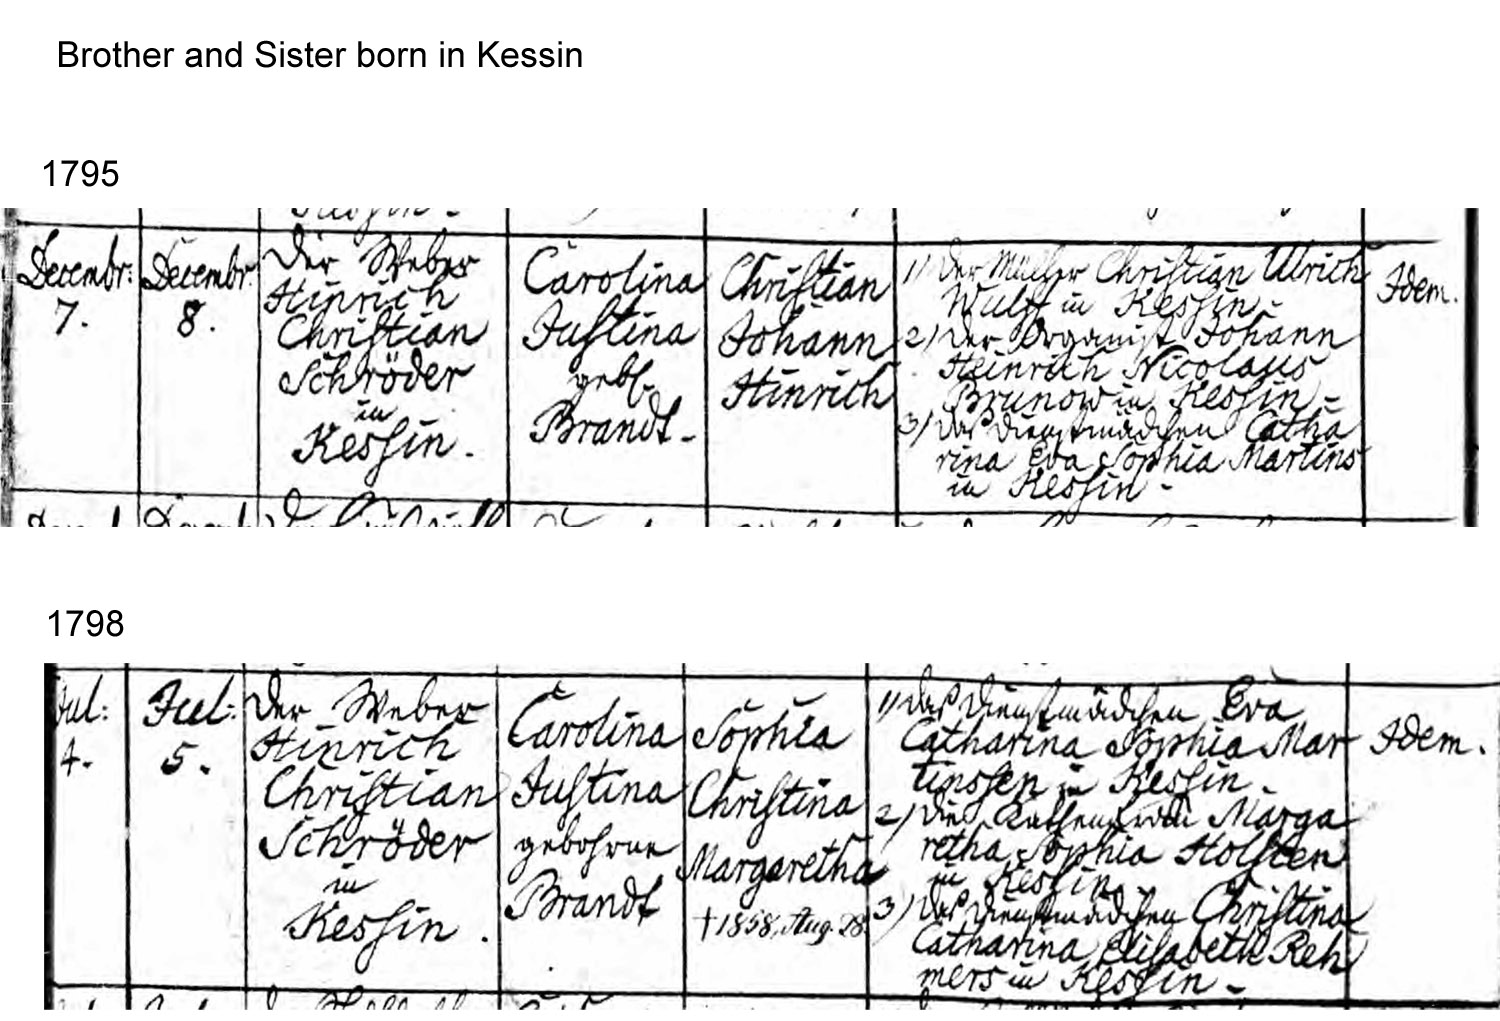 Brother and Sister born in Kessin
1795
Decembr:
7.
Decembr.
8.
Der Weber
Hinrich
Christian
Schröder
in
Kessin.
Carolina
Justina
gebl.
Brandt.
Christian
Johann
Hinrich
1) Der Müller Christian Ulrich
Wulff in Kessin.
2) Der Organist Johann
Heinrich Nicolaus
Brunow in Kessin.
3) Das Dienstmädchen Catha
rina Eva Sophia Martins
in Kessin.
Idem.
1798
Jul:
4.
Jul:
5.
Der Weber
Hinrich
Christian
Schröder
in
Kessin.
Carolina
Justina
gebohrne
Brandt
Sophia
Christina
Margaretha
† 1858, Aug. 28.
1) Das Dienstmädchen Eva
Catharina Sophia Mar
tinssen in Kessin.
2) Die Marga
retha Sophia Holsten
in Kessin.
3) Das Dienstmädchen Christina
Catharina Elisabeth Reh
mers in Kessin.
Idem.